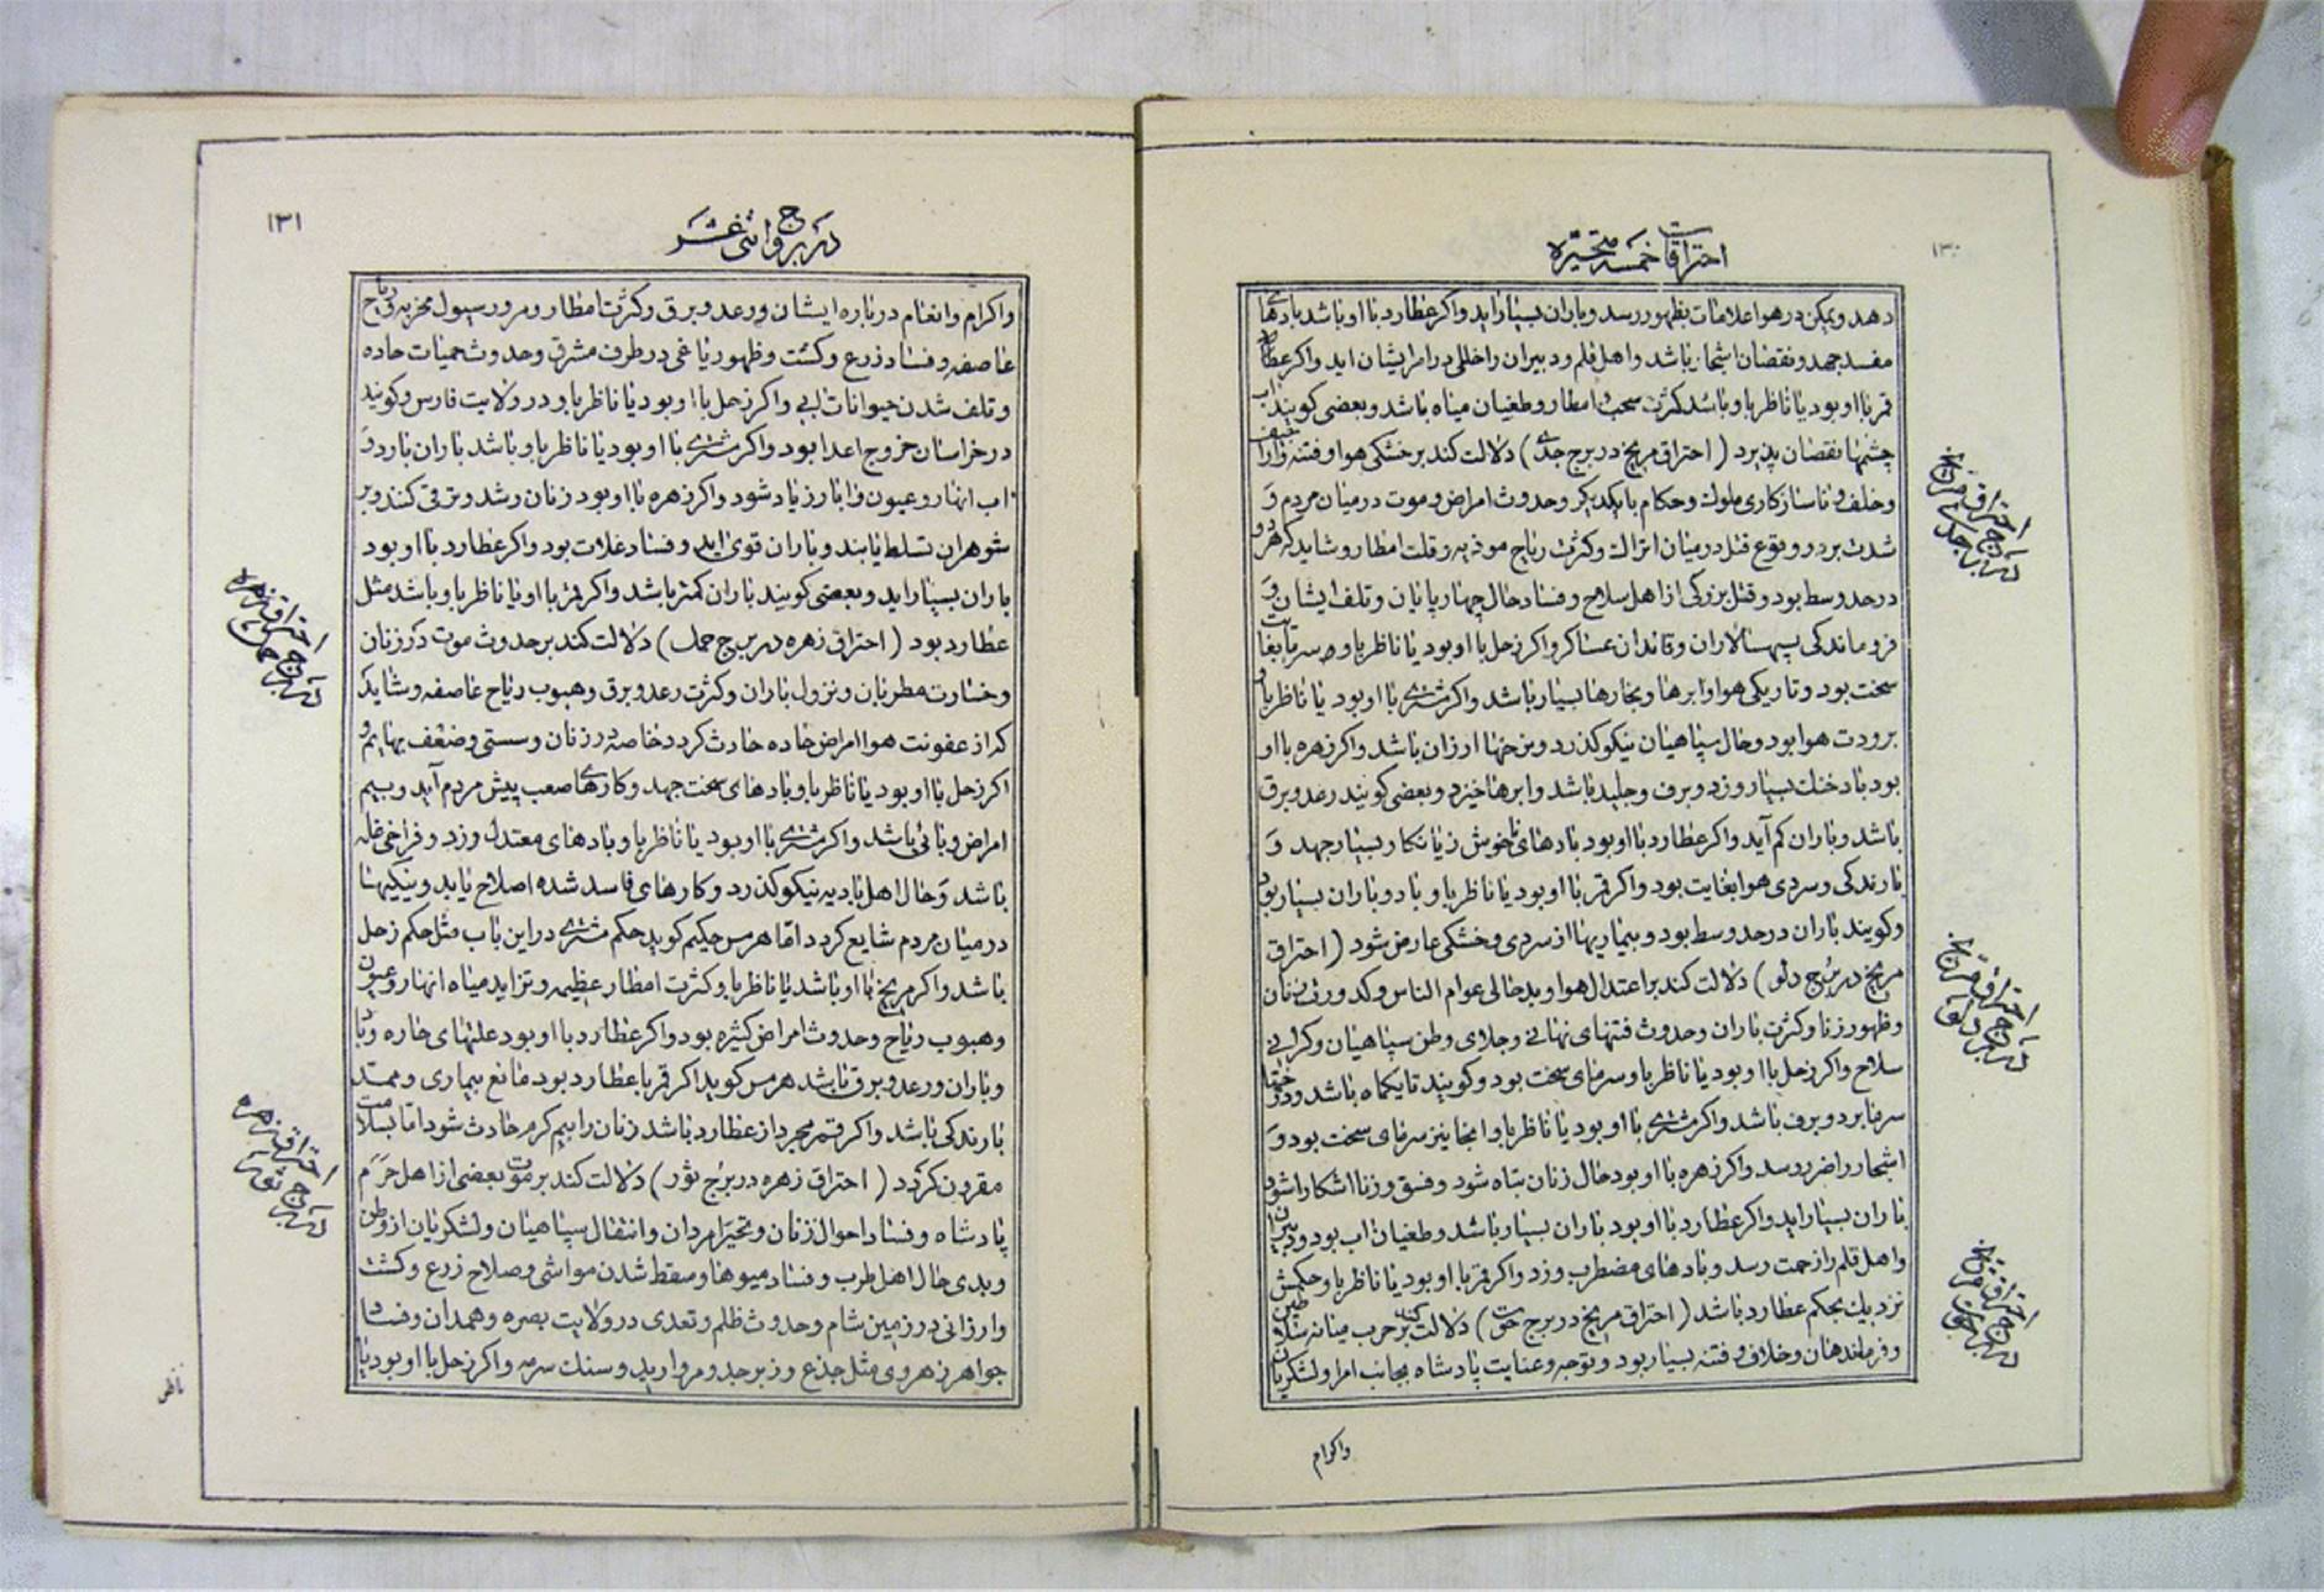 ۱۳۰
احتراقات خمسه متحیّره
دهد و یمکن در هوا علامات بظهور رسد و باران بسیار اید و اکر عطارد با او باشد بادهای
مفسد جهد و نقصان اشجار باشد و اهل قلم و دبیران را خللی در امر ایشان اید و اکر عطارد
قمر با او بود یا ناظر باو باشد کثرت سحب و امطار و طغیان میاه باشد و بعضی کویند اب
چشمها نقصان پذیرد ( احتراق مریخ در برج جدی ) دلالت کند بر خشکی هوا و فتنه و
و خلف و ناسازکاری ملوک و حکام با یکدیکر و حدوث امراض و موت در میان مردم و
شدت برد و وقوع قتل در میان اتراک و کثرت ریاح موذیه و قلت امطار و شاید که هر دو
در حد وسط بود و قتل بزرکی از اهل سلاح و فساد حال چهارپایان و تلف ایشان و
فروماندکی سپهسالاران و قائدان عساکر و اکر زحل با او بود یا ناظر باو سرما بغایت
سخت بود و تاریکی هوا و ابرها و بخارها بسیار باشد و اکر مشتری با او بود یا ناظر باو
برودت هوا بود و حال سپاهیان نیکو کذرد و نرخها ارزان باشد و اکر زهره با او
بود باد خنک بسیار وزد و برف و جلید باشد و ابرها خیزد و بعضی کویند رعد و برق
باشد و باران کم آید و اکر عطارد با او بود بادهای ناخوش زیانکار بسیار جهد و
بارندکی و سردی هوا بغایت بود و اکر قمر با او بود یا ناظر باو باد و باران بسیار بود
و کویند باران در حد وسط بود و بیماریها از سردی و خشکی عارض شود ( احتراق
مریخ در برج دلو ) دلالت کند بر اعتدال هوا و بدحالی عوام الناس و کدورت زنان
و ظهور زنا و کثرت باران و حدوث فتنهای نهانی و جلای وطن سپاهیان و کرانی
سلاح و اکر زحل با او بود یا ناظر باو سرمای سخت بود و کویند تا یکماه باشد و درختان
سرما برد و برف باشد و اکر مشتری با او بود یا ناظر باو انجا نیز سرمای سخت بود و
اشجار را ضرر رسد و اکر زهره با او بود حال زنان تباه شود و فسق و زنا اشکارا شود
باران بسیار اید و اکر عطارد با او بود باران بسیار باشد و طغیان اب بود و دبیران
و اهل قلم را زحمت رسد و بادهای مضطرب وزد و اکر قمر با او بود یا ناظر باو حکمش
نزدیک بحکم عطارد باشد ( احتراق مریخ در برج حوت ) دلالت کند بر حرب میانه سلاطین
و فرماندهان و خلاف و فتنه بسیار بود و توجه و عنایت پادشاه بجانب امرا و لشکریان
واکرام
احتراق مریخ
در برج جدی
احتراق مریخ
در برج دلو
احتراق مریخ
در برج حوت
۱۳۱
در بروج اثنی عشر
و اکرام و انعام درباره ایشان و رعد و برق و کثرت امطار و مرور سیول مخربه و ریاح
عاصفه و فساد ذرع و کشت و ظهور یاغی در طرف مشرق و حدوث حمیات حاده
و تلف شدن حیوانات ابی و اکر زحل با او بود یا ناظر باو در ولایت فارس و کویند
در خراسان خروج اعدا بود و اکر مشتری با او بود یا ناظر باو باشد باران بارد و
اب انهار و عیون و ابار زیاد شود و اکر زهره با او بود زنان رشد و ترقی کنند و بر
شوهران تسلط یابند و باران قوی اید و فساد غلات بود و اکر عطارد با او بود
باران بسیار اید و بعضی کویند باران کمتر باشد و اکر قمر با او یا ناظر باو باشد مثل
عطارد بود ( احتراق زهره در برج حمل ) دلالت کند بر حدوث موت در زنان
و خسارت مطربان و نزول باران و کثرت رعد و برق و هبوب ریاح عاصفه و شاید
که از عفونت هوا امراض حاده حادث کردد خاصه در زنان و سستی و ضعف بهایم و
اکر زحل با او بود یا ناظر باو بادهای سخت جهد و کارهای صعب پیش مردم آید و بیم
امراض وبائی باشد و اکر مشتری با او بود یا ناظر باو بادهای معتدل وزد و فراخی غله
باشد و حال اهل بادیه نیکو کذرد و کارهای فاسد شده اصلاح یابد و نیکیها
در میان مردم شایع کردد اما هرمس حکیم کوید حکم مشتری در این باب مثل حکم زحل
باشد و اکر مریخ با او باشد یا ناظر باو کثرت امطار عظیمه و تزاید میاه انهار و عیون
و هبوب ریاح و حدوث امراض کثیره بود و اکر عطارد با او بود علتهای حاره و وبا
و باران و رعد و برق باشد هرمس کوید اکر قمر با عطارد بود مانع بیماری و ممد
بارندکی باشد و اکر قمر مجرد از عطارد باشد زنان را بیم کرم حادث شود اما بسلامت
مقرون کردد ( احتراق زهره در برج ثور ) دلالت کند بر موت بعضی از اهل حرم
پادشاه و فساد احوال زنان و تحیر مردان و انتقال سپاهیان و لشکریان از وطن
و بدی حال اهل طرب و فساد میوها و سقط شدن مواشی و صلاح زرع و کشت
و ارزانی در زمین شام و حدوث ظلم و تعدی در ولایت بصره و همدان و فساد
جواهر زهروی مثل جذع و زبرجد و مروارید و سنک سرمه و اکر زحل با او بود یا
ناظر
احتراق زهره
در برج حمل
احتراق زهره
در برج ثور